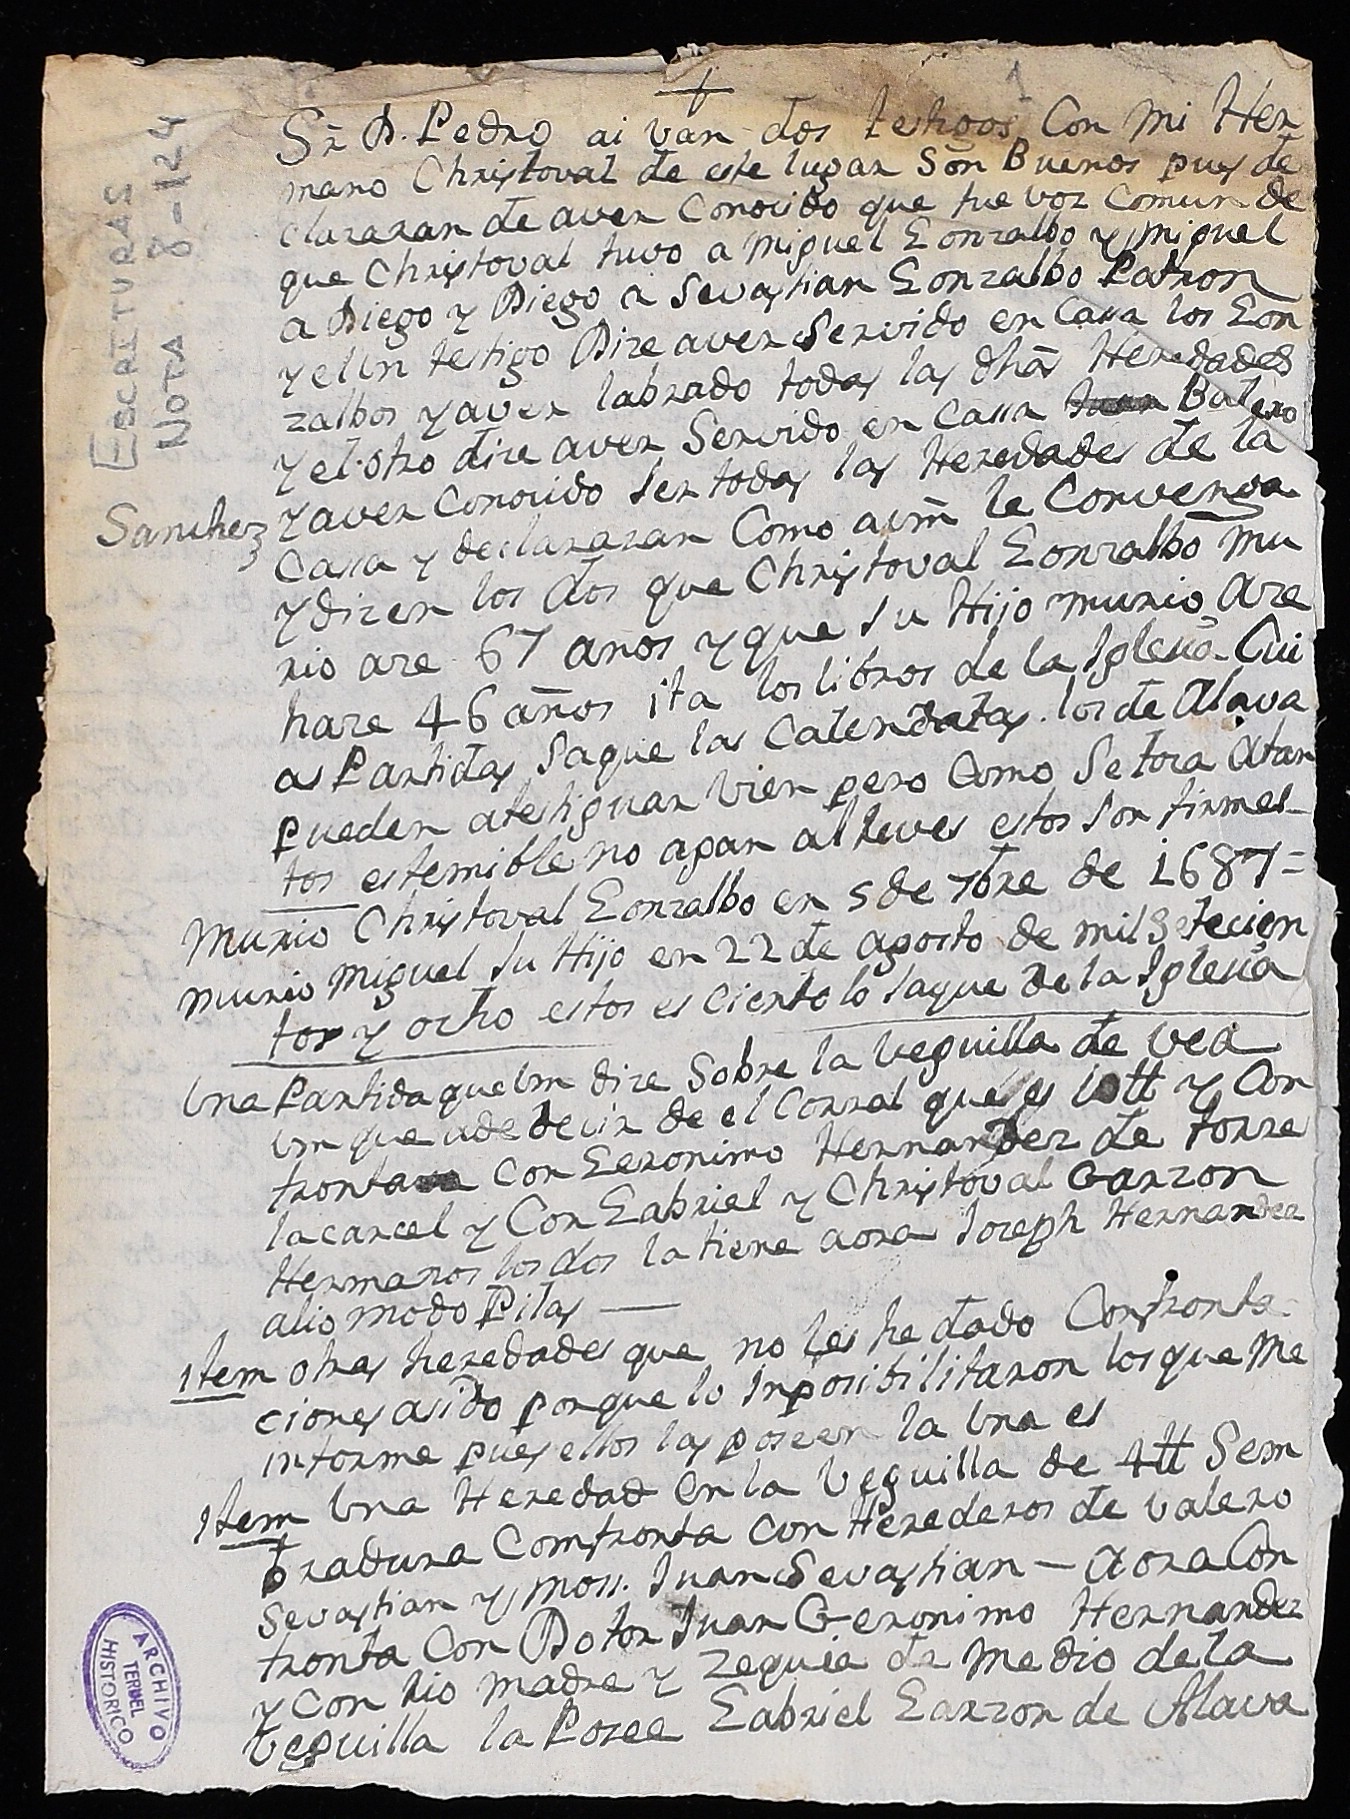 1
ESCRITURAS
NOTA 8-124
Sanchez
Sr D. Pedro ai van dos testigos Con mi Her
mano Christoval de este lugar Son Buenos pues de
clararan de aver Conocido que fue voz Comun de
que Christoval tuvo a Miguel Gonzalbo y Miguel
a Diego y Diego a Sevastian Gonzalbo Patron
y el un testigo Dize aver Servido en Cassa los Gon
zalbos y aver labrado todas las dhas Heredades
y el otro dize aver Servido en Cassa Juan Balero
y aver Conocido ser todas las Heredades de la
Cassa y declararan Como a vm le Convenga
y dizen los dos que Christoval Gonzalbo mu
rio aze 67 años y que su Hijo murio aze
haze 46 años ita los libros de la Iglesia Cui
as Partidas saque las Calendatas los de Alava
pueden atestiguar vien pero Como Se toca atan
tos es temible no agan al reves estos son firmes
Murio Christoval Gonzalbo en 5 de 7bre de 1687=
murio Miguel su Hijo en 22 de agosto de mil Setecien
tos y ocho estos es ciento lo saque de la Iglesia
Una Partida que vm dize Sobre la veguilla de vea
vm que a de decir de el Corral que es y Con
fronta con Geronimo Hernandez de torre
la carcel y Con Gabriel y Christoval Garzon
Hermanos los dos la tiene aora Joseph Hernandez
alio modo Pilas
Item otras heredades que no les he dado Confronta
ciones a sido porque lo Inposibilitaron los que me
informe pues ellos las poseen la Una es
Item Una Heredad en la Veguilla de 4 Sem
bradura Comfronta con Herederos de Valero
Sevastian y Moss. Juan Sevastian — aora Con
fronta Con Dotor Juan Geronimo Hernandez
y con Rio madre y zequia de medio de la
Veguilla la Posee Gabriel Garzon de Alava
ARCHIVO
HISTORICO
TERUEL